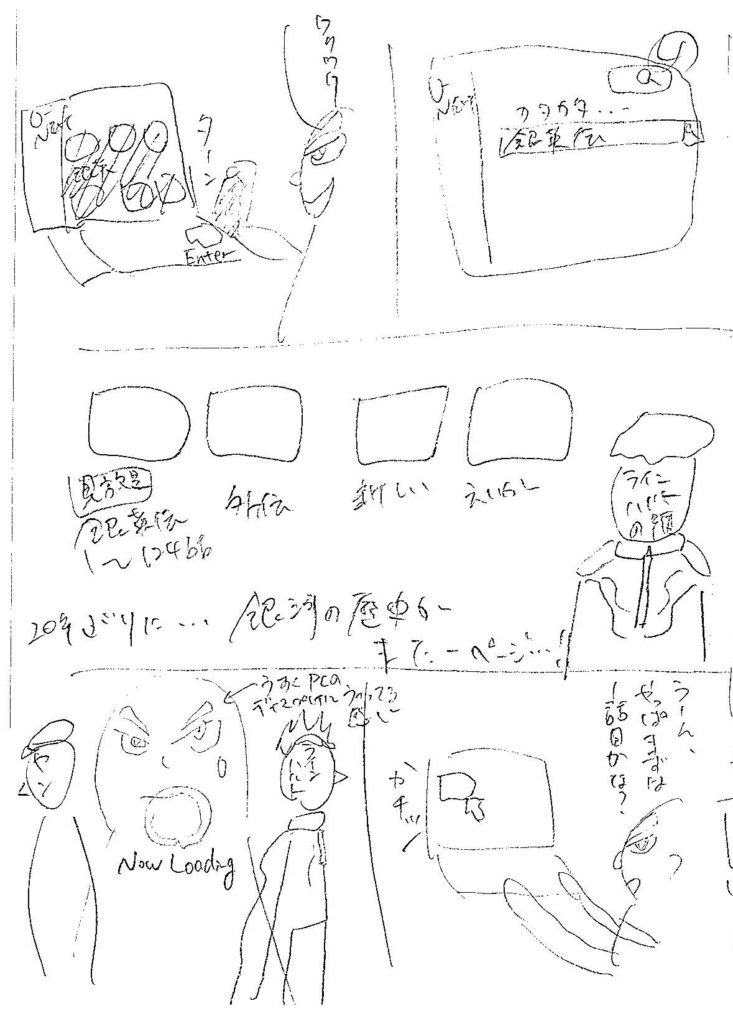 U-
Next
カタカタ...
銀英伝
ワクワク
U-
Next
ターン
Enter
見放題
銀英伝
1〜124話
外伝
新しい
えいが
ライン
ハルト
の顔
20年ぶりに… 銀河の歴史が
また一ページ…!!
うーん、
やっぱまずは
1話目かな？
カチッ
うすくPCの
ディスプレイにうつってる
感じ
ライン
ハルト
ヤン
Now Loading